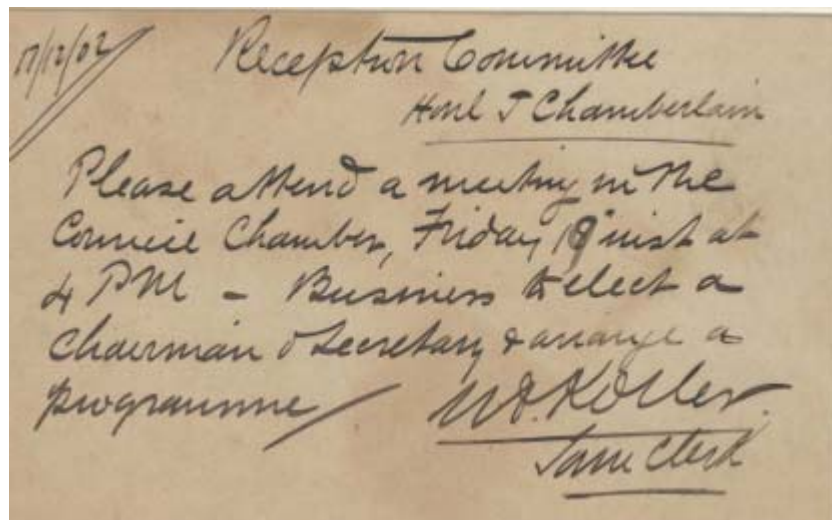 17/12/02
Reception Committee
Honl J Chamberlain
Please attend a meeting in the
Council Chamber, Friday 19th inst at
4 PM - Business to elect a
Chairman & Secretary & arrange a
programme
Town Clerk